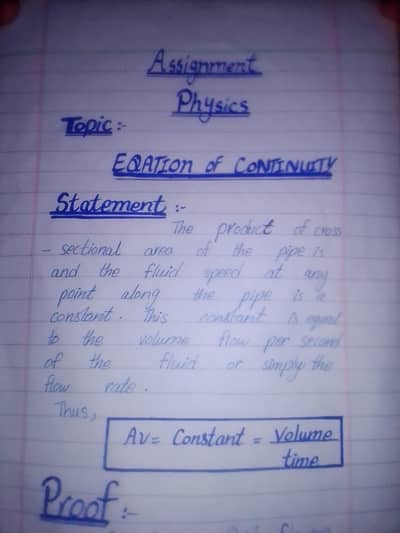 Assignment
Physics
Topic :-
EQATION OF CONTINUITY
Statement :-
The product of cross
- sectional area of the pipe is
and the fluid speed at any
point along the pipe is a
constant. This constant is equal
to the volume flow per second
of the fluid or simply the
flow rate.
Thus,
Av = Constant = Volume
time
Proof :-